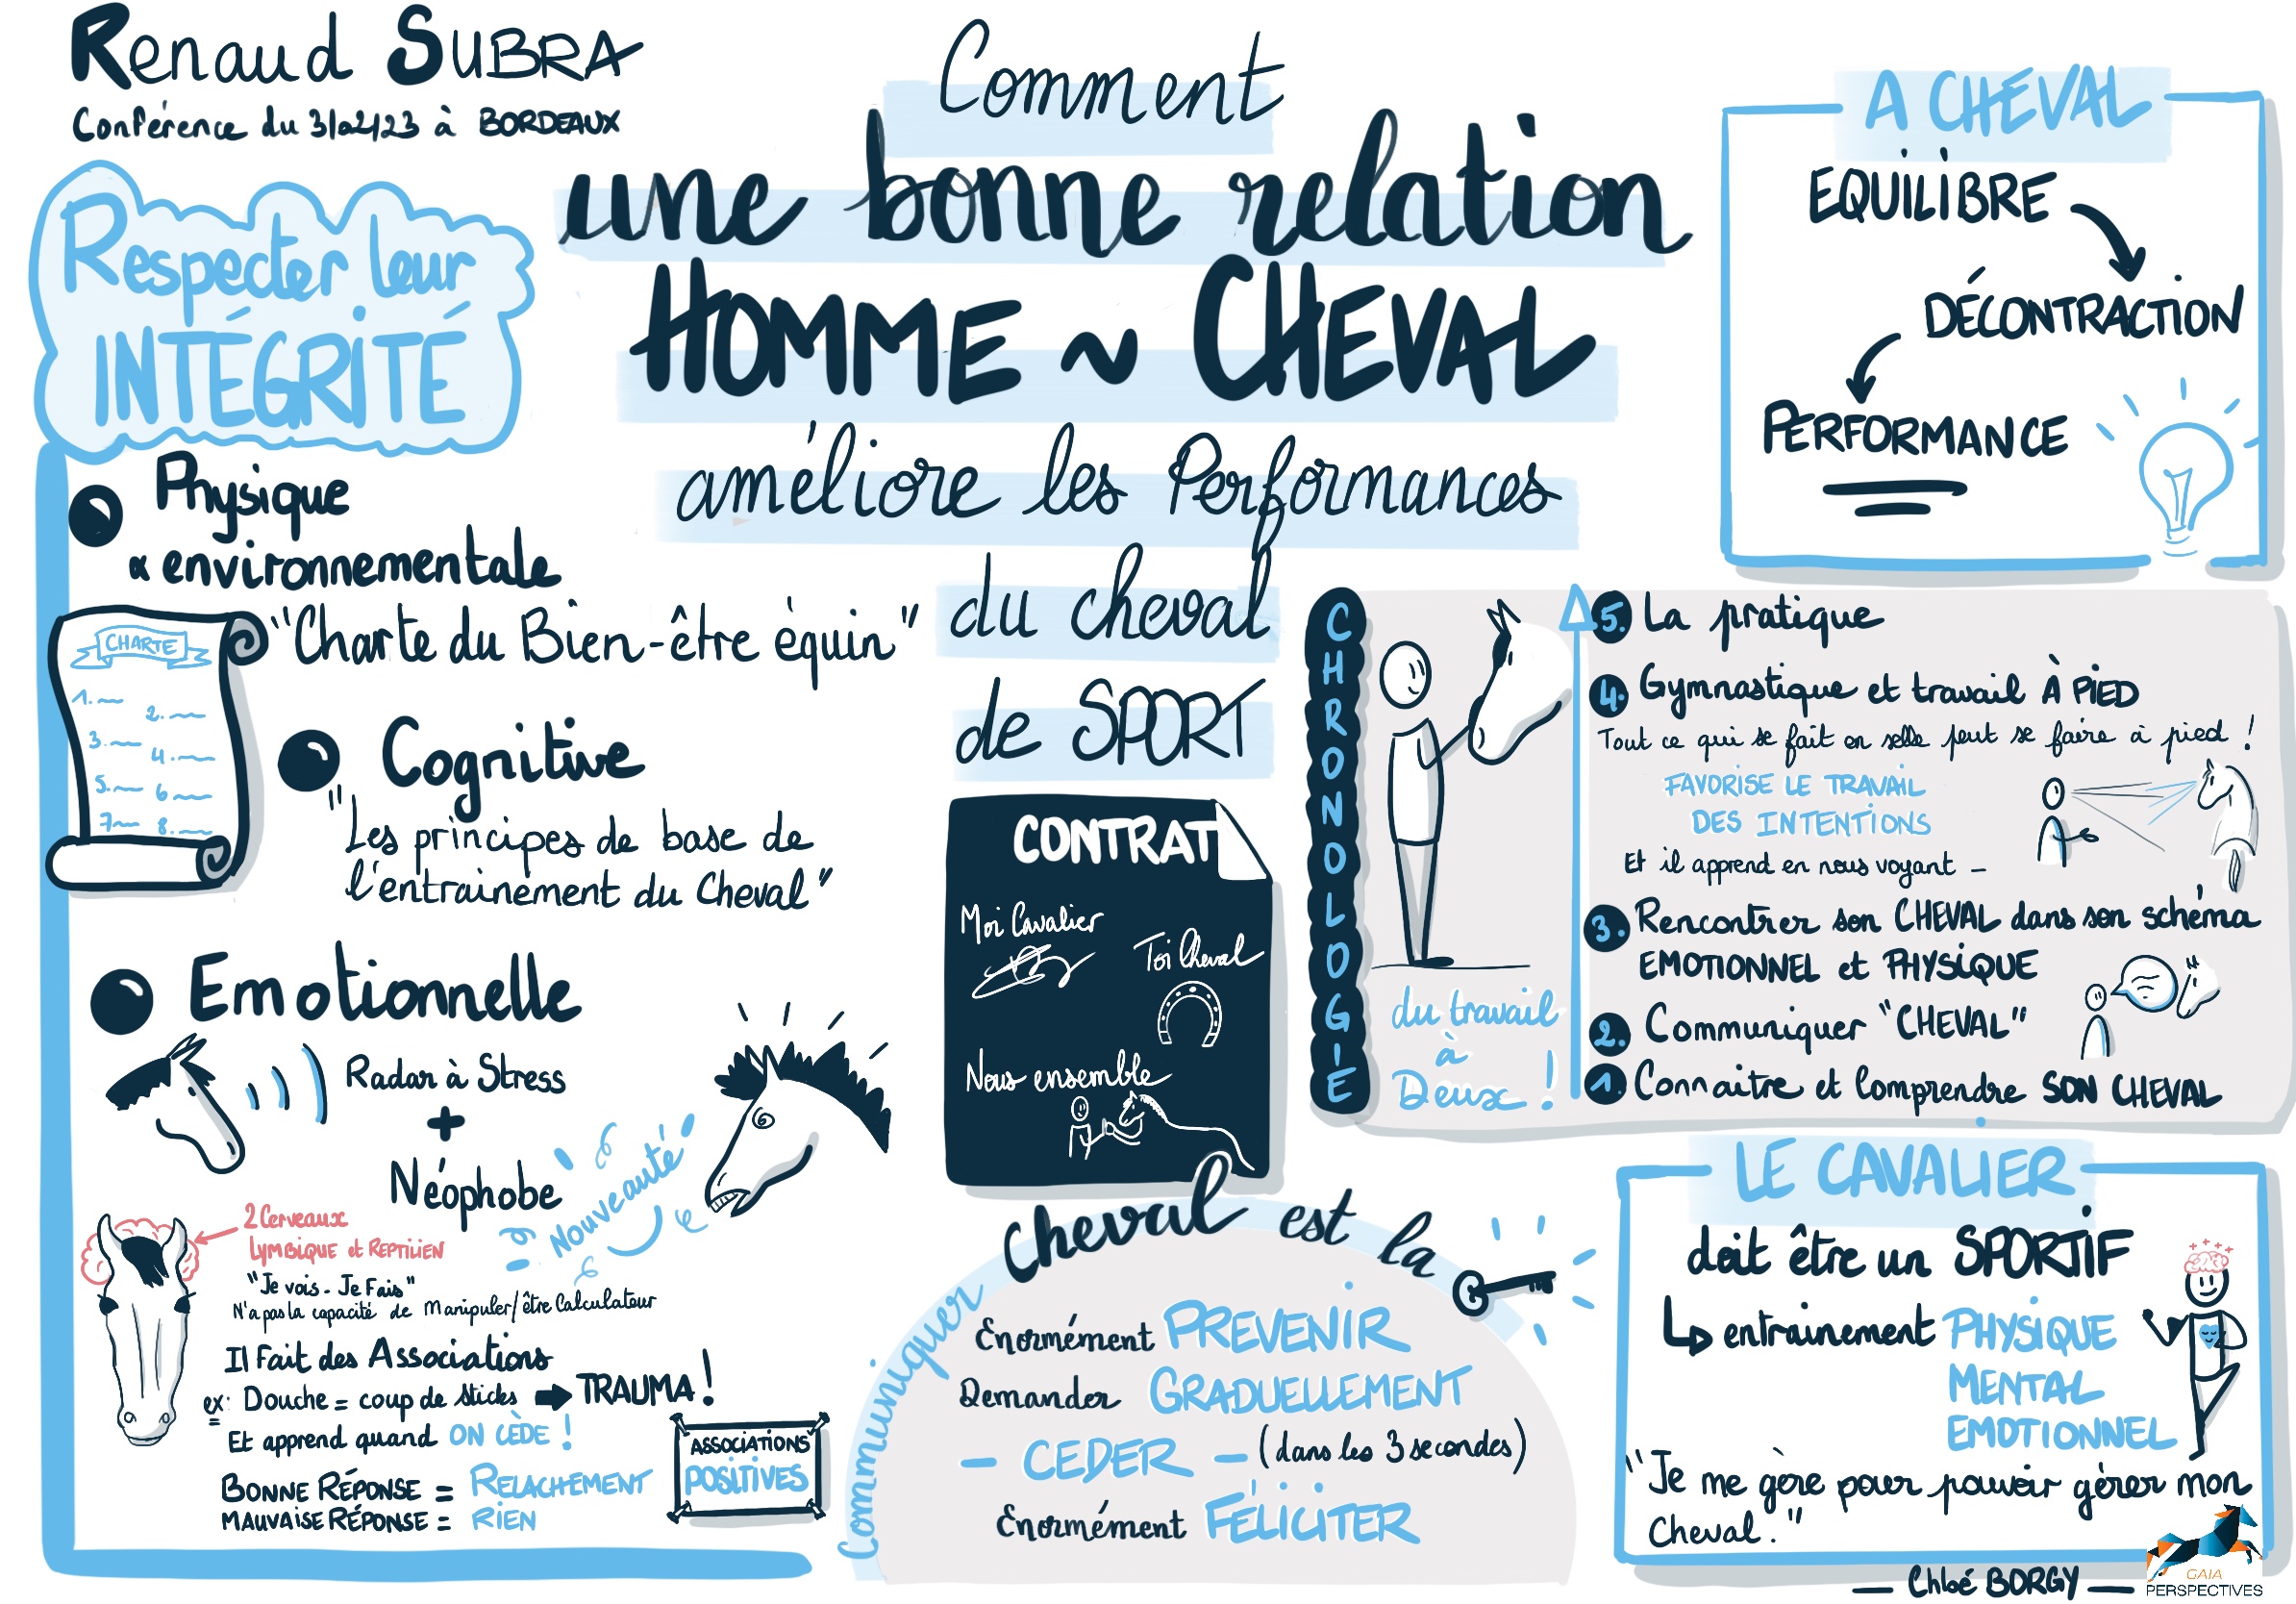 Renaud SUBRA
Conférence du 3/02/23 à BORDEAUX
Comment
une bonne relation
HOMME ~ CHEVAL
améliore les Performances
du cheval
de SPORT
Respecter leur
INTÉGRITÉ
Physique
& environnementale
CHARTE
1.
2.
3.
4.
5.
6
7
8.
"Charte du Bien-être équin"
Cognitive
"Les principes de base de
l'entrainement du Cheval"
Emotionnelle
Radar à Stress
+
Néophobe
Nouveauté
2 Cerveaux
LYMBIQUE et REPTILIEN
"Je vois - Je Fais"
N'a pas la capacité de Manipuler/être Calculateur
Il Fait des Associations
ex: Douche = coup de sticks ➡ TRAUMA !
Et apprend quand ON CÈDE !
BONNE RÉPONSE = RELACHEMENT
MAUVAISE RÉPONSE = RIEN
ASSOCIATIONS
POSITIVES
CONTRAT
Moi Cavalier
Toi Cheval
Nous ensemble
Communiquer cheval est la
Enormément PREVENIR
Demander GRADUELLEMENT
- CEDER - (dans les 3 secondes)
Enormément FÉLICITER
A CHEVAL
EQUILIBRE
DÉCONTRACTION
PERFORMANCE
CHRONOLOGIE
du travail
à
Deux !
5. La pratique
4. Gymnastique et travail À PIED
Tout ce qui se fait en selle peut se faire à pied !
FAVORISE LE TRAVAIL
DES INTENTIONS
Et il apprend en nous voyant -
3. Rencontrer son CHEVAL dans son schéma
EMOTIONNEL et PHYSIQUE
2. Communiquer "CHEVAL"
1. Connaitre et Comprendre SON CHEVAL
LE CAVALIER
doit être un SPORTIF
entrainement PHYSIQUE
MENTAL
EMOTIONNEL
"Je me gère pour pouvoir gérer mon
Cheval."
- Chloé BORGY -
GAIA
PERSPECTIVES